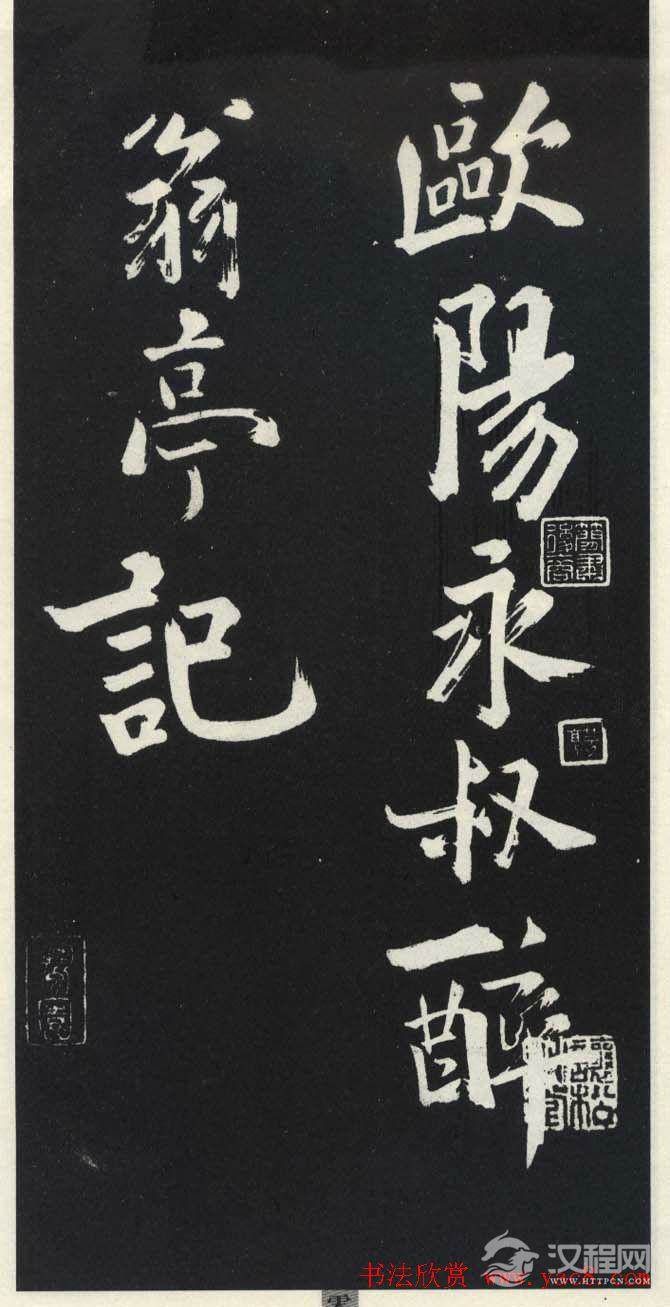 歐陽永叔醉
翁亭記
汉程网
WWW.HTTPCN.COM
书法欣赏